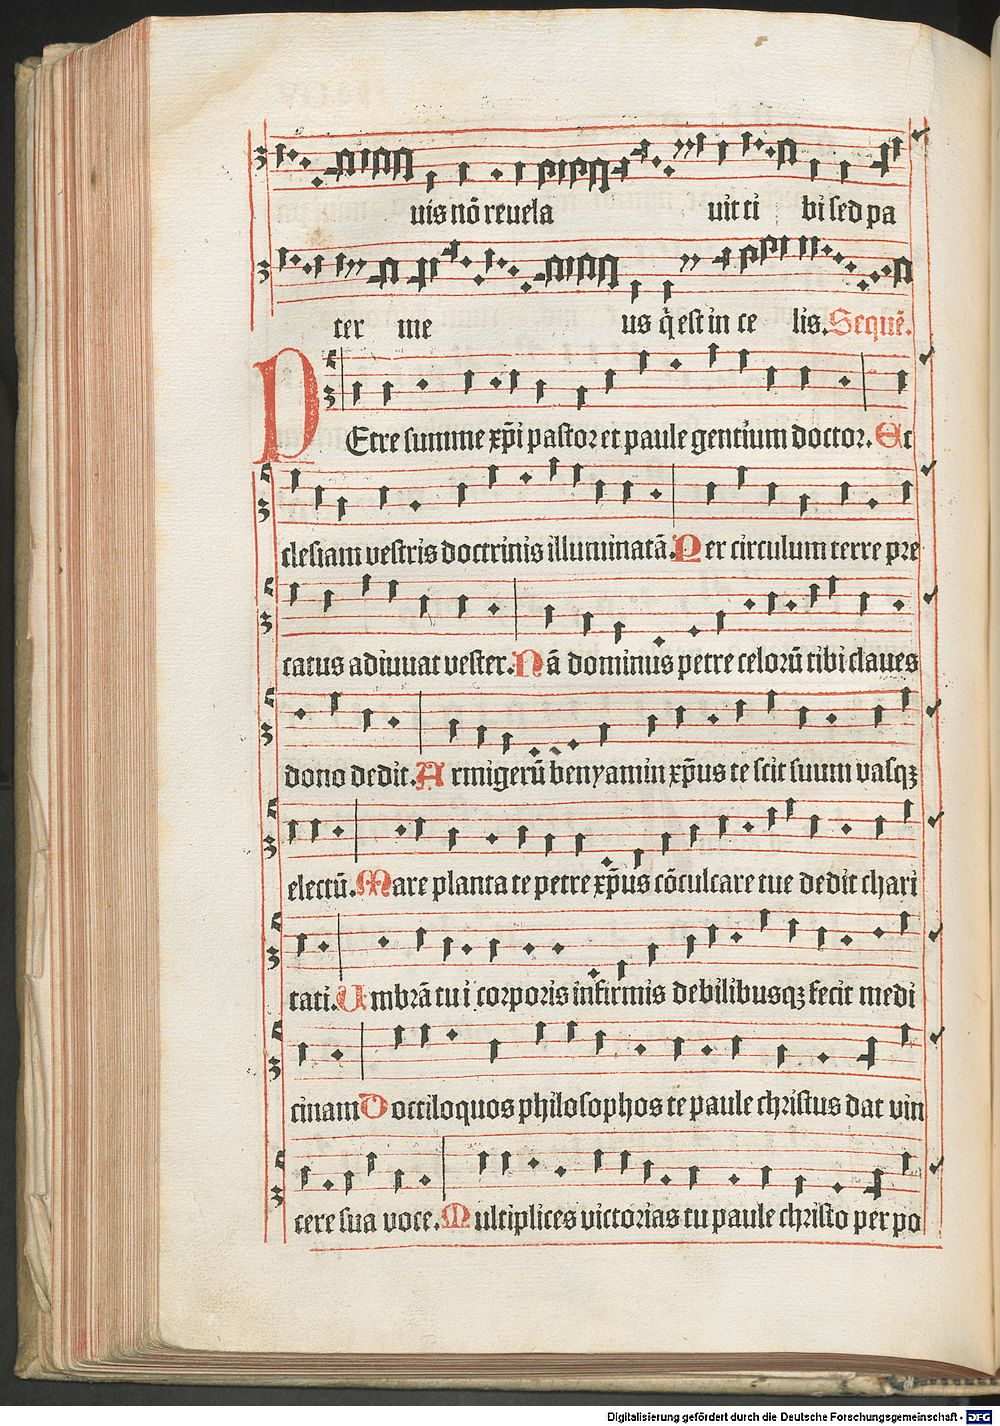 uis nō reuela uit ti bi sed pa
ter me us q̃ est in ce lis. Sequē.
PEtre summe xp̄i pastor et paule gentium doctor. Ec
clesiam vestris doctrinis illuminatā. Per circulum terre pre
catus adiuuat vester. Nā dominus petre celorū tibi claues
dono dedit. Armigerū benyamin xp̄us te scit suum vasqȝ
electū. Mare planta te petre xp̄us cōculcare tue dedit chari
tati. Umbrā tu i corporis infirmis debilibusqȝ fecit medi
cinam Doctiloquos philosophos te paule christus dat vin
cere sua voce. Multiplices victorias tu paule christo per po
Digitalisierung gefördert durch die Deutsche Forschungsgemeinschaft - DFG